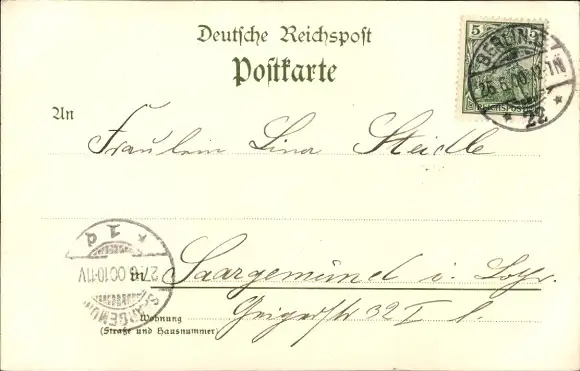 Deutsche Reichspost
Postkarte
5
REICHSPOST
BERLIN
26.6.00.12-1N
* 22 *
An
Fräulein Lina Steidle
SAARGEMÜND
27.6.00.10-11V
1 d
in Saargemünd i. Lothr.
Geigerstr 32 I l.
Wohnung
(Straße und Hausnummer)